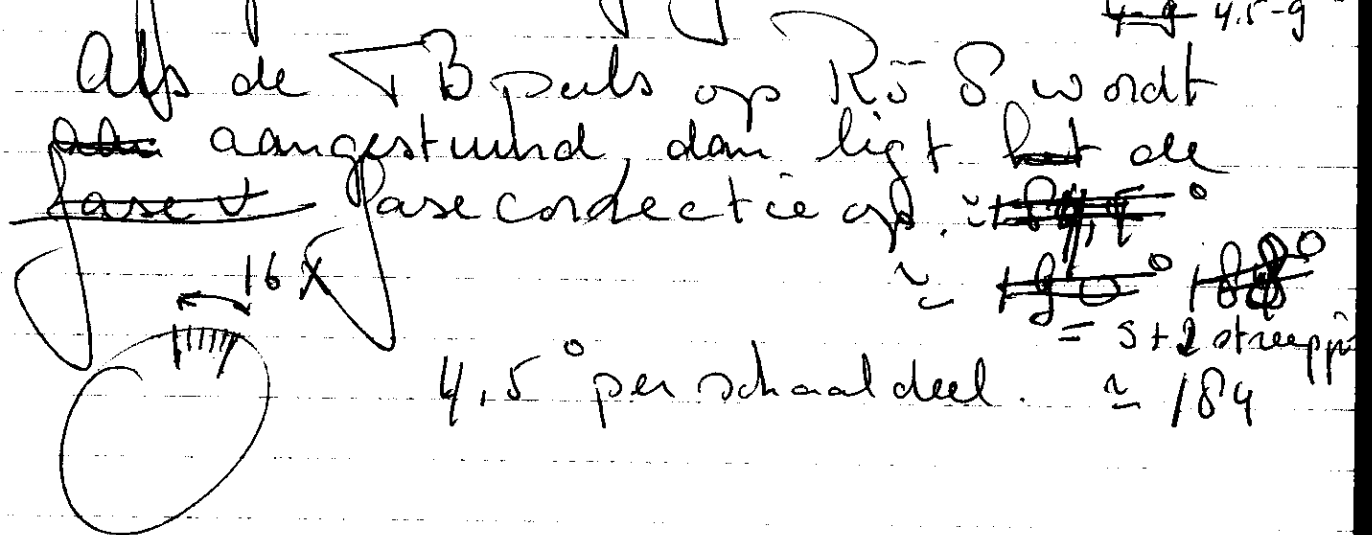 4.5-g
Als de TB puls op Rö S wordt
aangestuurd, dan ligt de
fasecorrectie op. ≃
≃ 188°
16 X
= 5 + 2 streepjes
4,5° per schaaldeel. ≃ 184